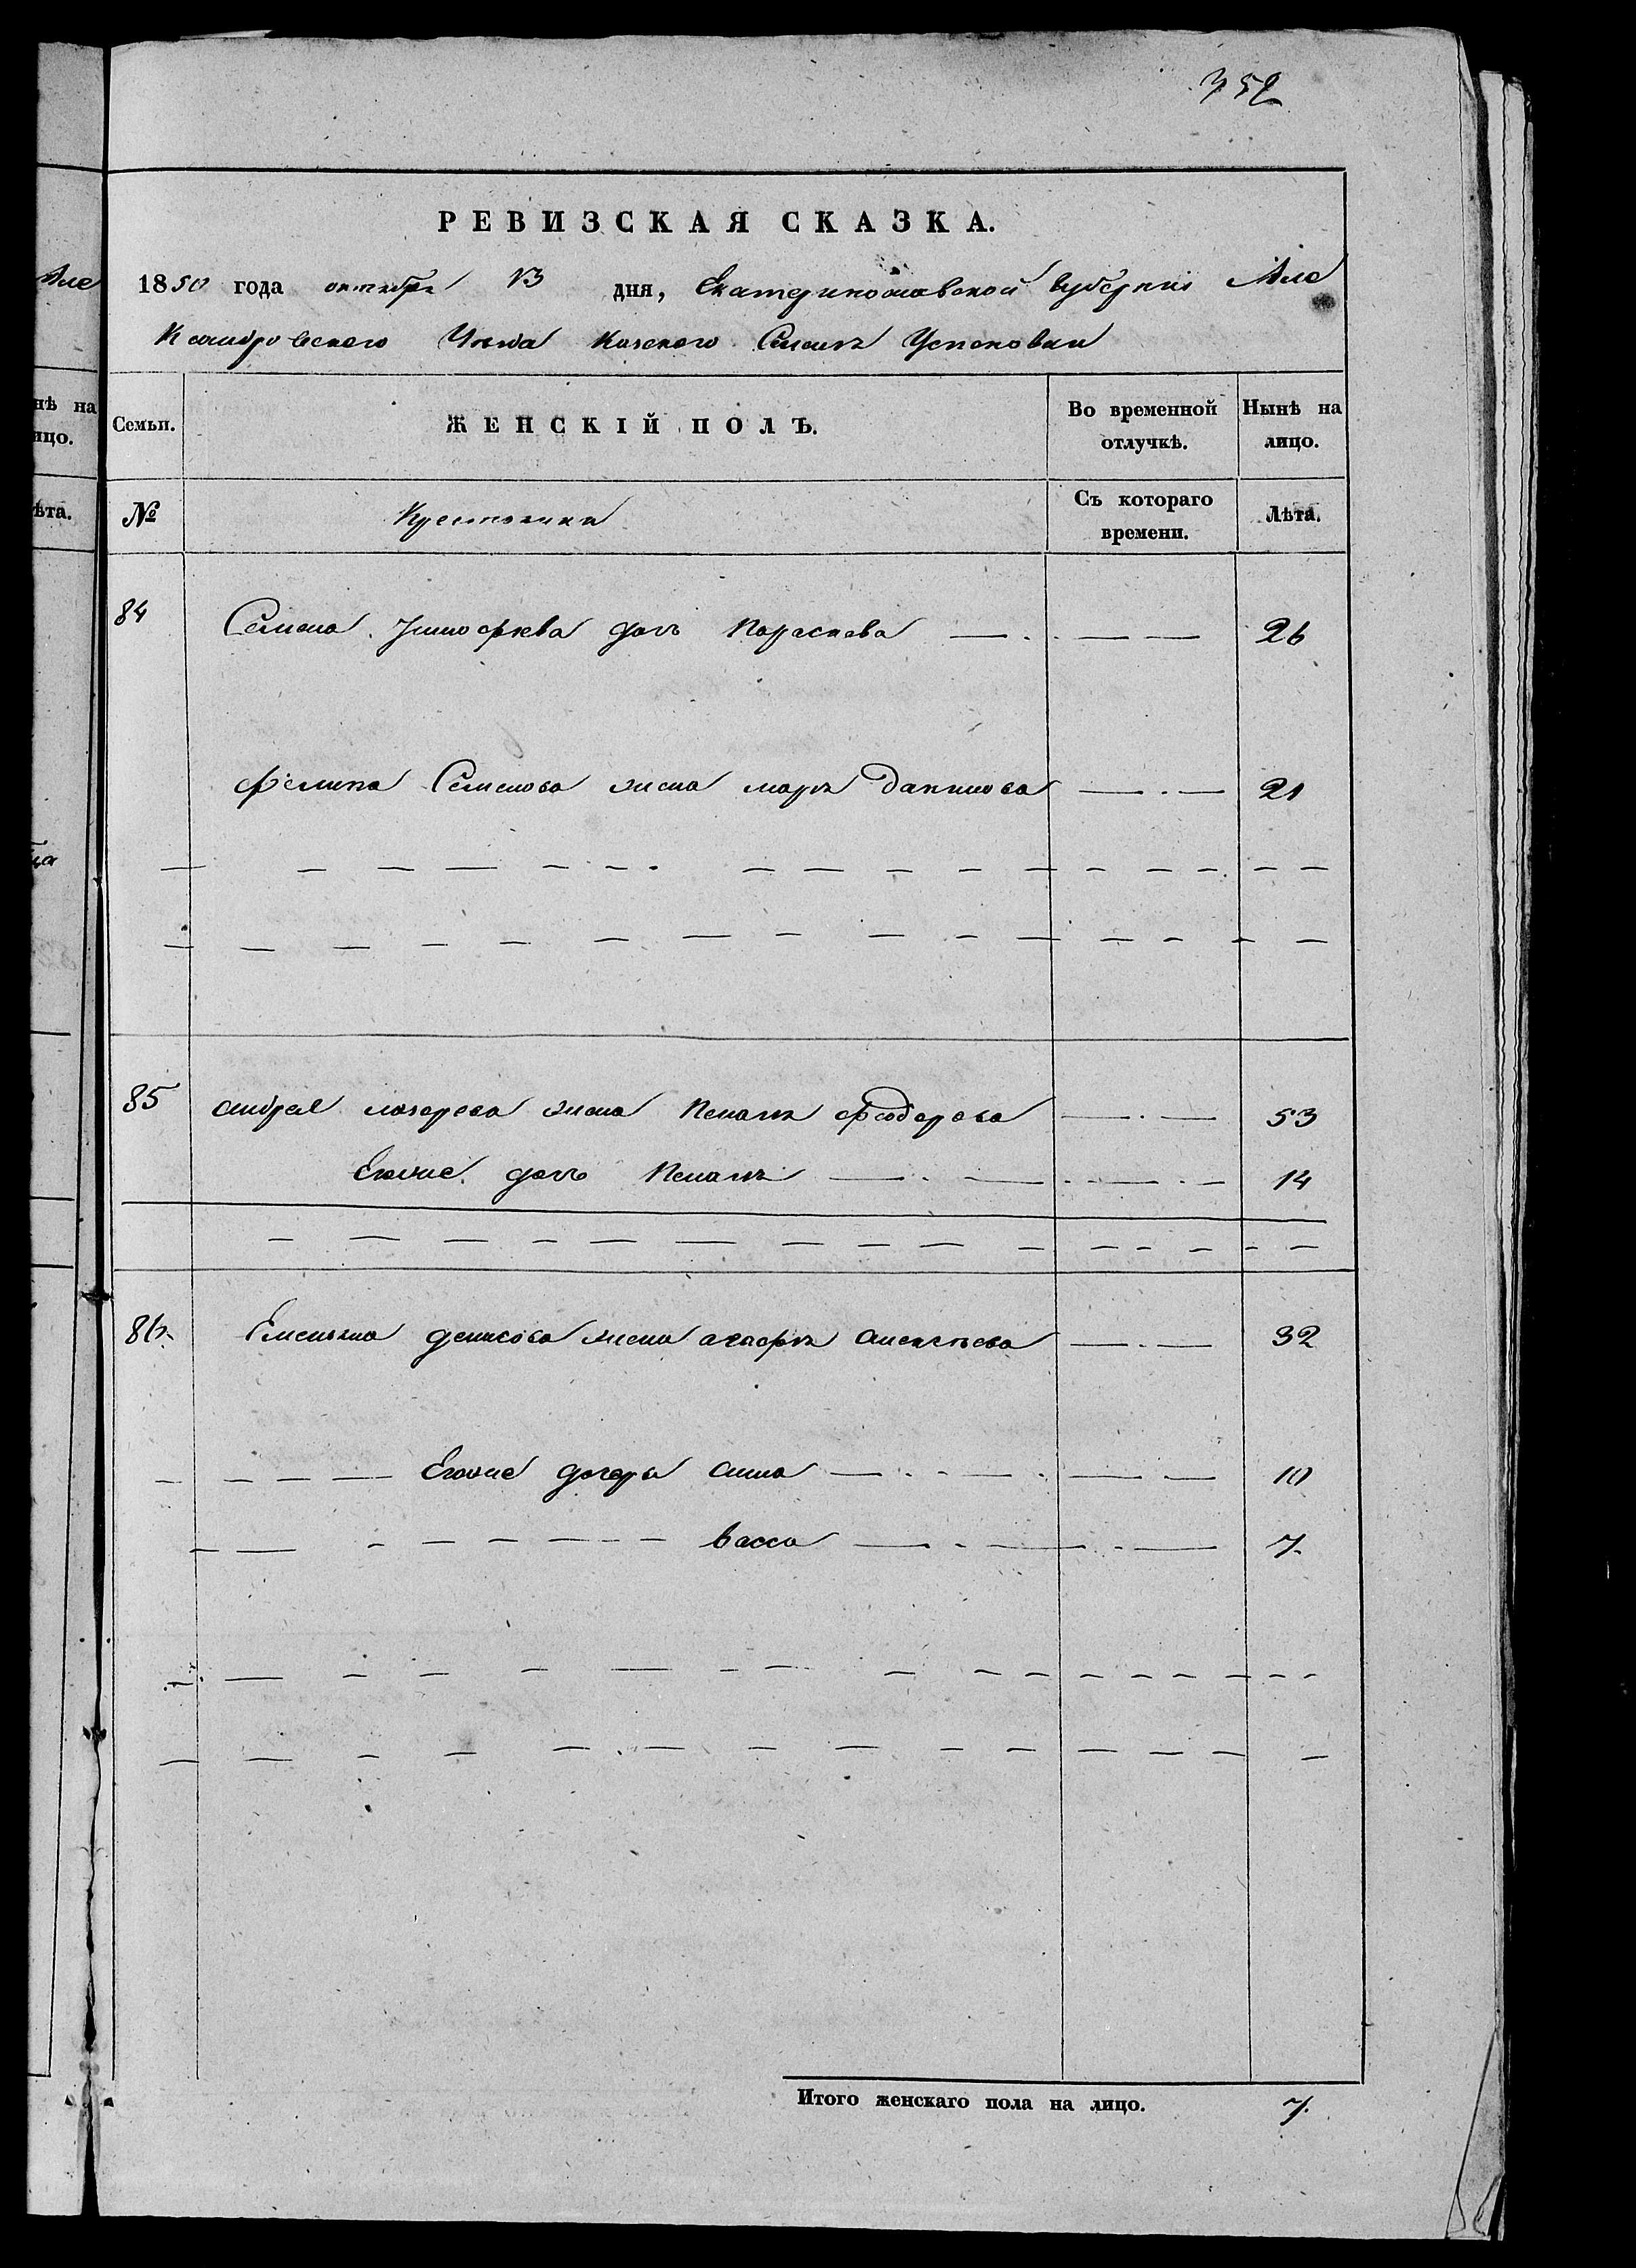 352
РЕВИЗСКАЯ СКАЗКА.
Але
1850 года октября 13 дня, Екатеринославской Губерніи Але
ксандровского Уезда Казеного Селенія Успеновки
нѣ на
ицо.
Семьи. ЖЕНСКІЙ ПОЛЪ. Во временной отлучкѣ. Нынѣ на лицо.
ѣта.
№ Крестьянки Съ котораго времени. Лѣта.
84 Семена Тимофеева дочь Параскева 26
Филипа Семенова жена марія Данилова 21
85 андрея лазарева жена Пелагея Феодорова 53
Егоже дочь Пелагея 14
86. Емельяна денисова жена агафія алексеева 32
Егоже дочери анна 10
васса 7.
Итого женскаго пола на лицо. 7.